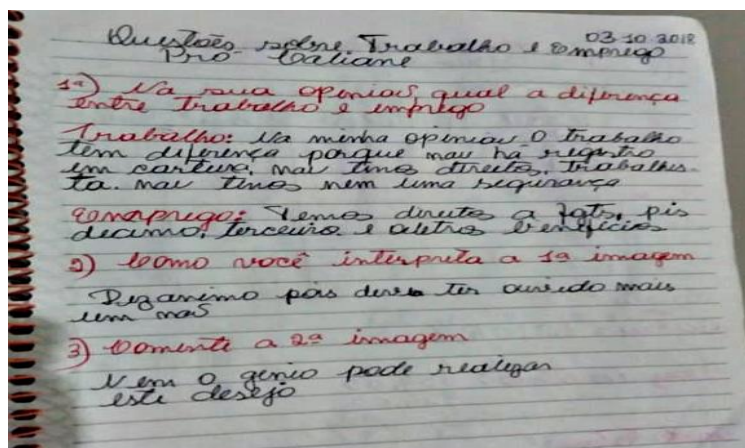 03-10-2018
Questões sobre Trabalho e Emprego
Pro- Caliane
1ª) Na sua openiaõ qual a diferença
entre trabalho e imprego
Trabalho: Na minha openiaõ O trabalho
tem diferença porque naú há registro
em carteira, naú tinos direitos, Trabalhis-
ta. naú tinos nem uma segurança
Temos direitos a fgts, pis
decimo, terceiro e outros beneficios
2) Como você interpreta a 1ª imagem
Dezanimo pois deve ter ouvido mais
um naõ
3) Comente a 2ª imagem
Nem o genio pode realizar
este desejo